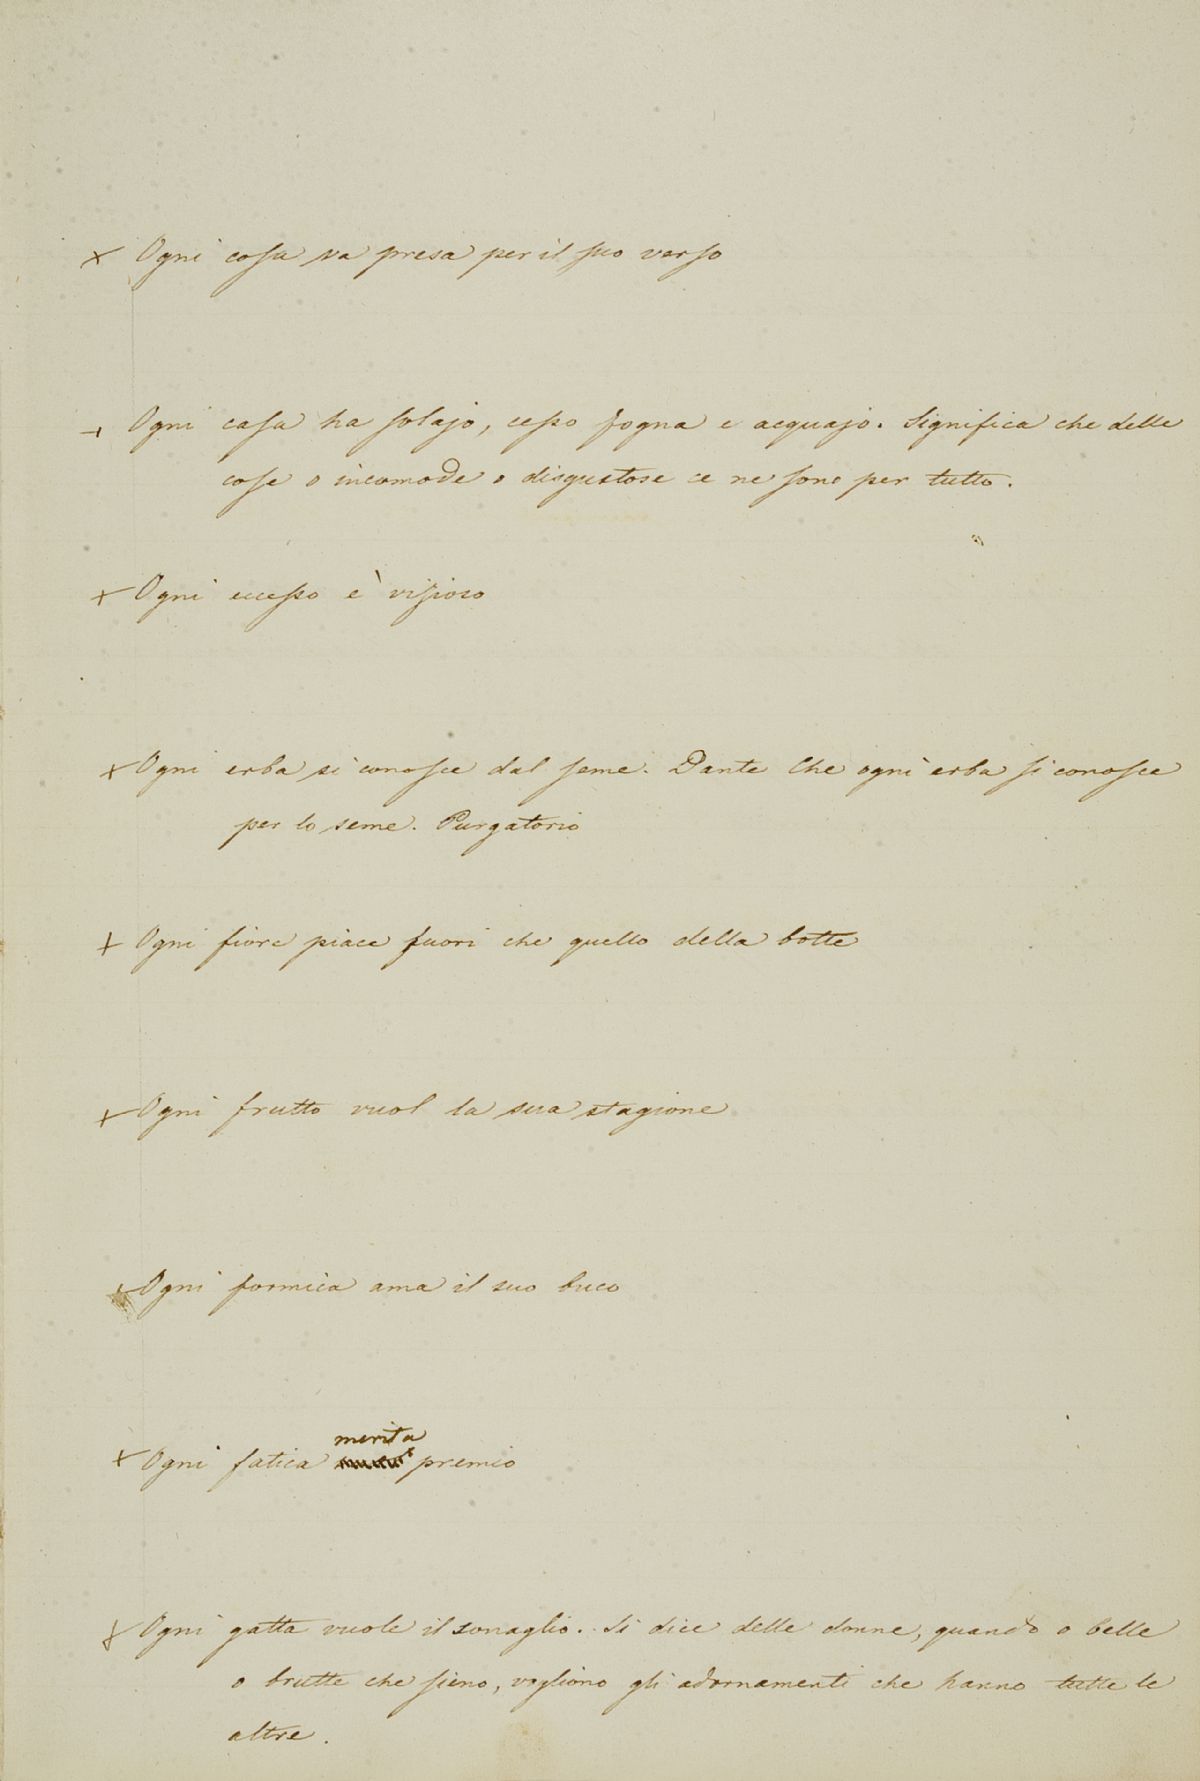 × Ogni cosa va presa per il suo verso
+ Ogni casa ha solajo, cesso fogna e acquajo. Significa che delle
cose o incomode o disgustose ce ne sono per tutto.
+ Ogni eccesso è vizioso
+ Ogni erba si conosce dal seme. Dante Che ogni erba si conosce
per lo seme. Purgatorio
+ Ogni fiore piace fuori che quello della botte
+ Ogni frutto vuol la sua stagione
+ Ogni formica ama il suo buco
merita
+ Ogni fatica premio
+ Ogni gatta vuole il sonaglio. Si dice delle donne, quando o belle
o brutte che sieno, vogliono gli adornamenti che hanno tutte le
altre.